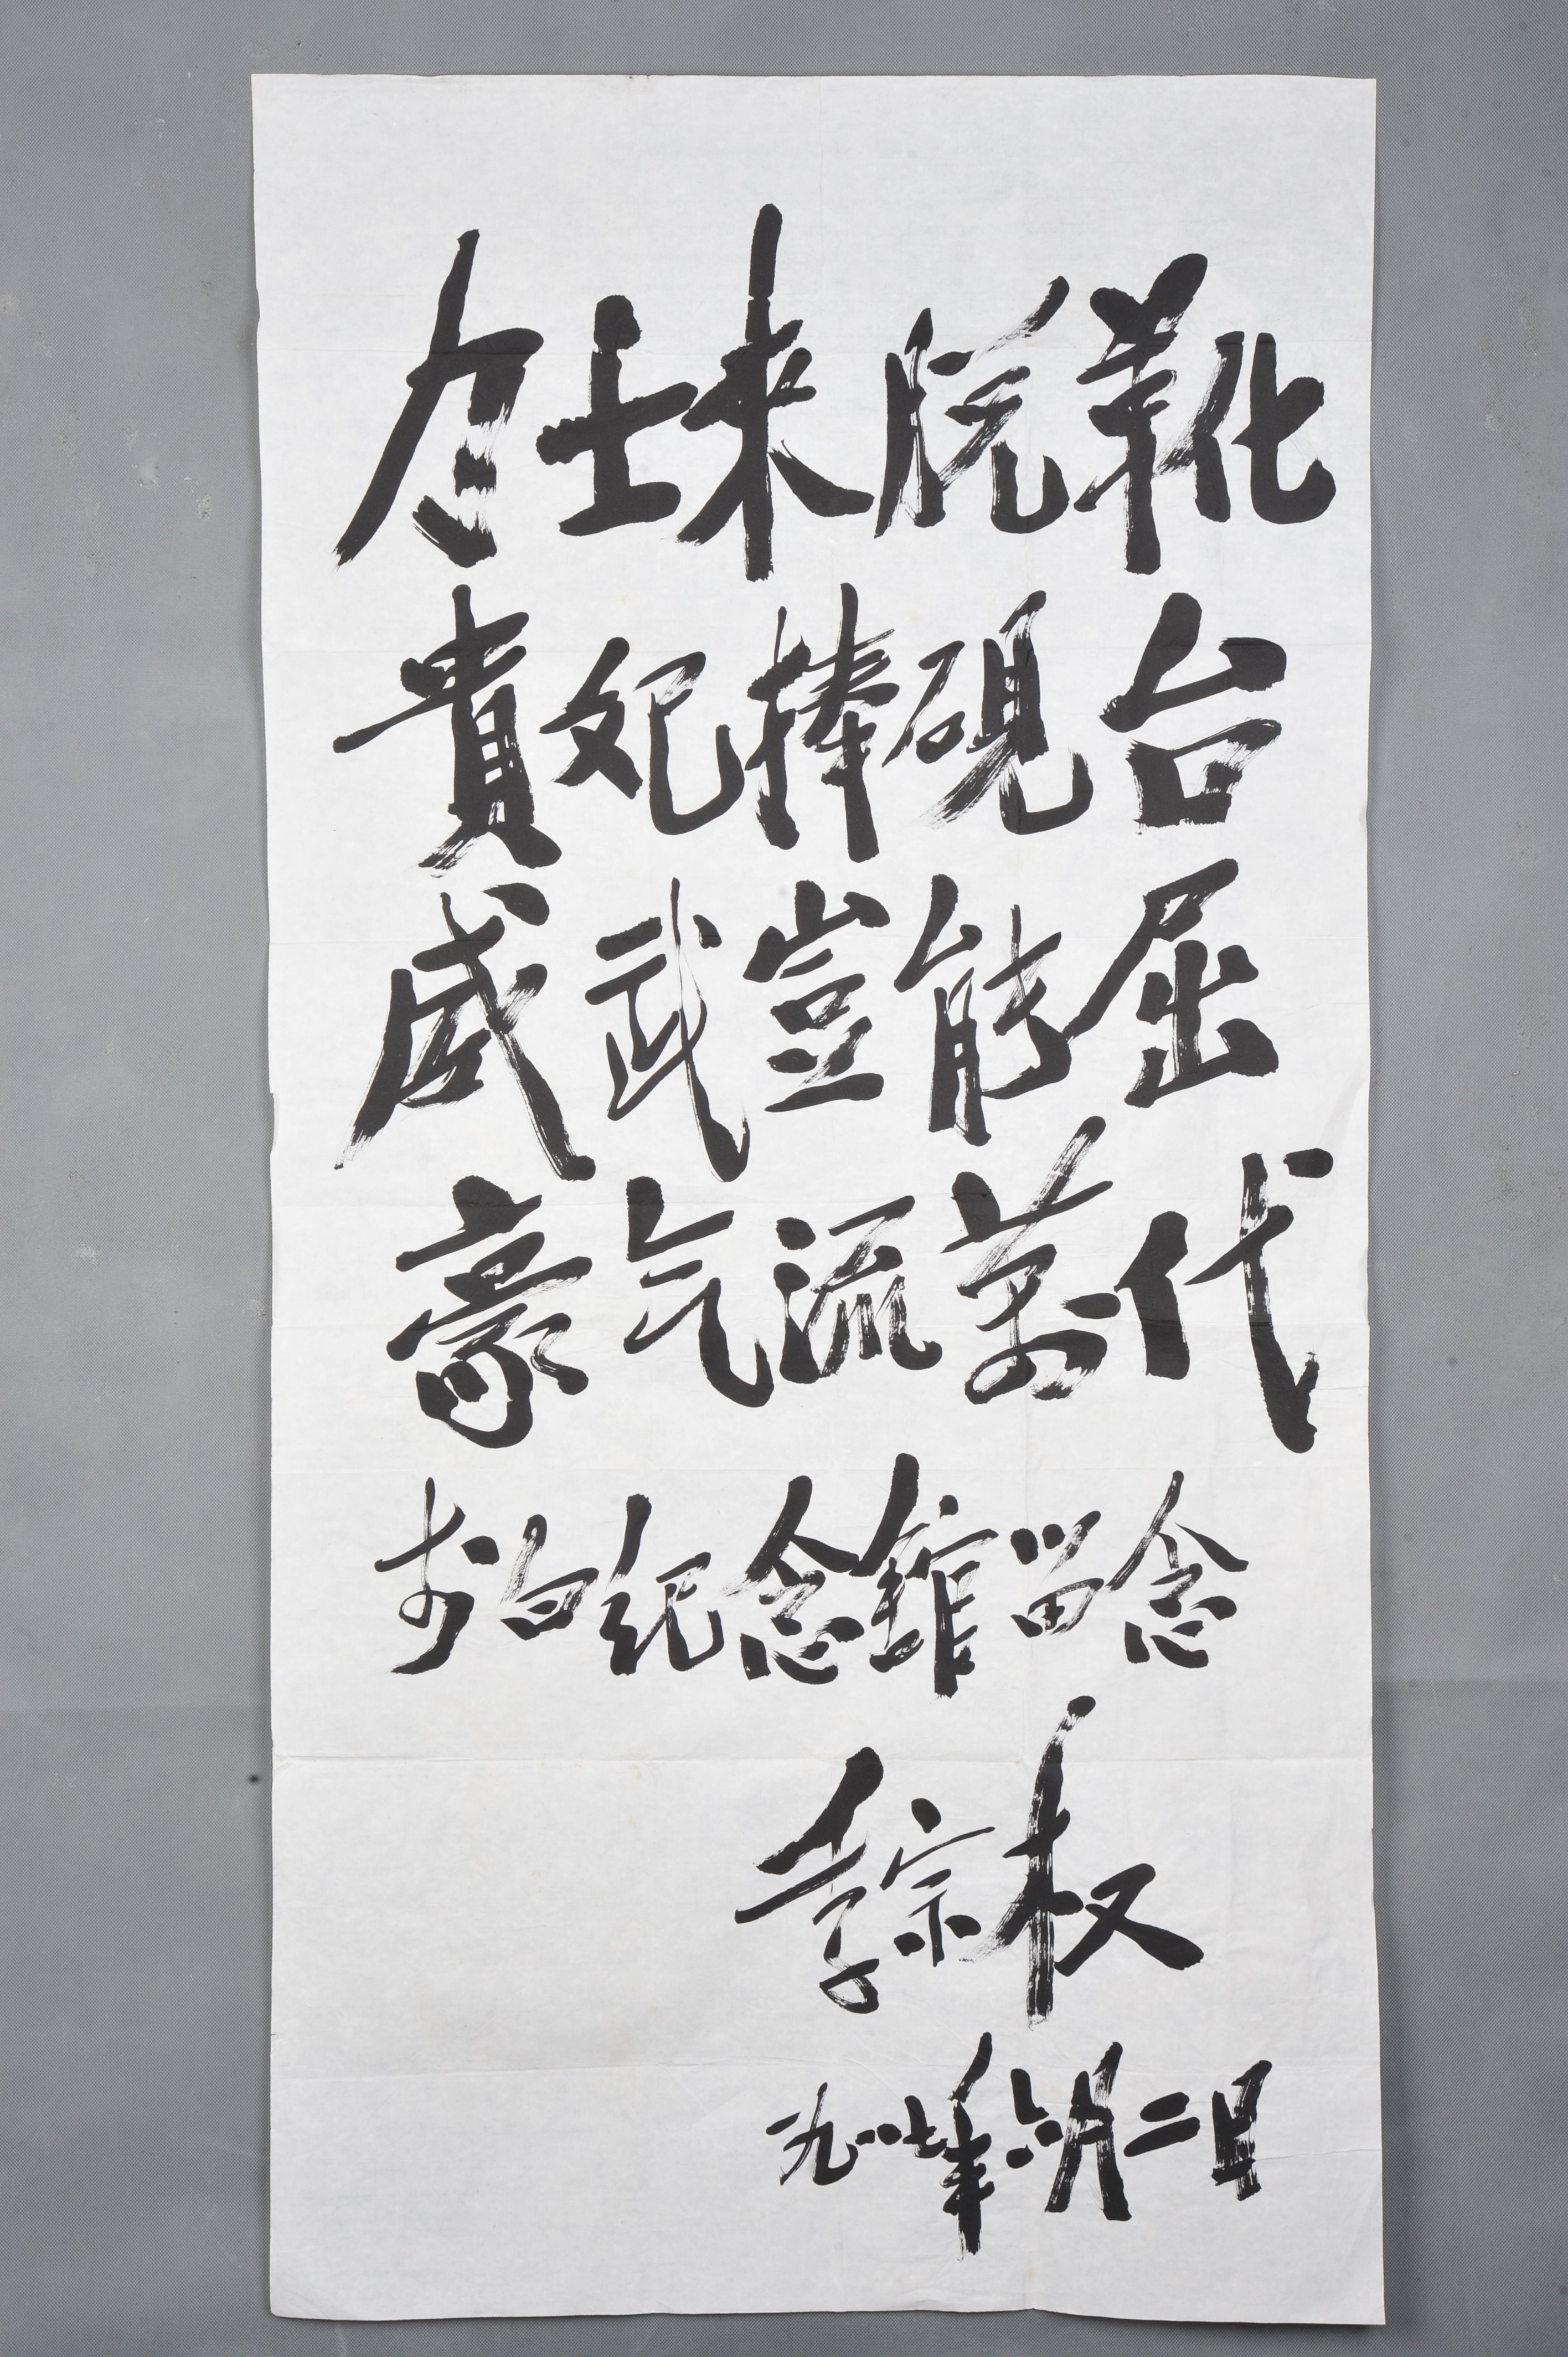 士来脱靴
貴妃捧硯台
威武豈能屈
豪气流萬代
李白纪念館留念
李宗权
一九八七年六月二日